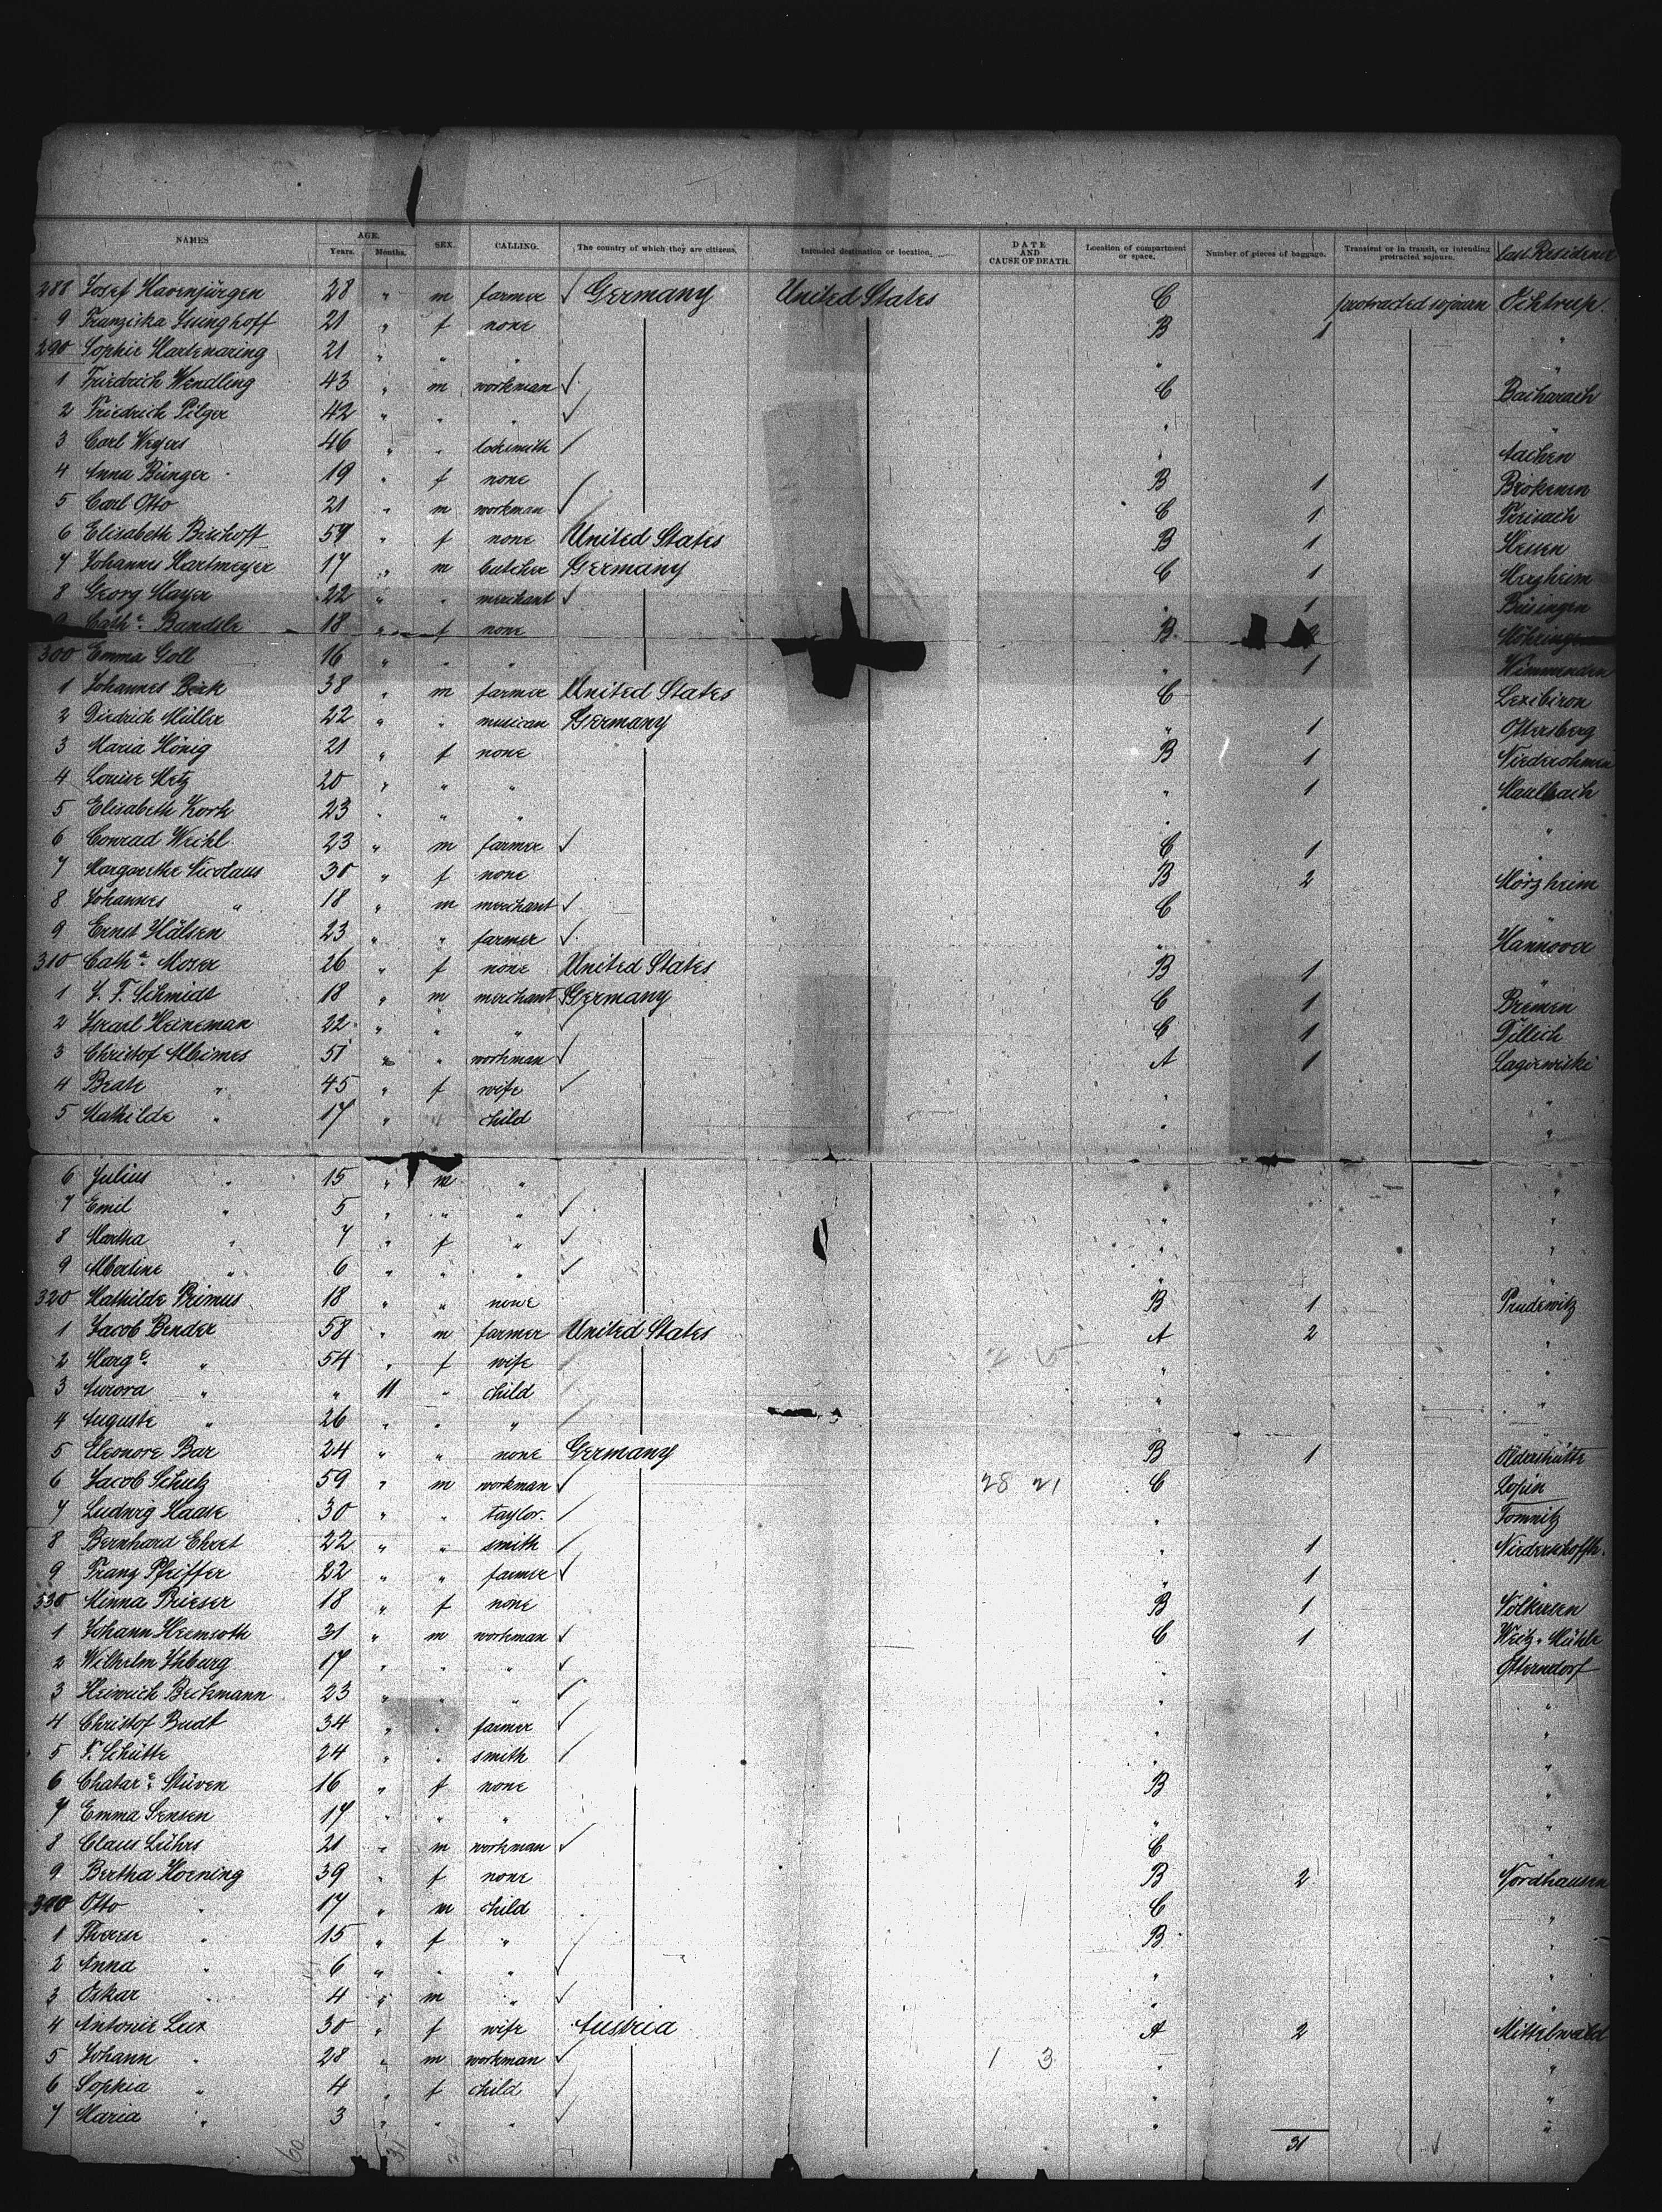 NAMES AGE. Years. Months. SEX. CALLING. The country of which they are citizens. Intended destination or location. DATE AND CAUSE OF DEATH. Location of compartment or space. Number of pieces of baggage. Transient or in transit, or intending protracted sojourn. Last Residence
288 Josef Havenjürgen 28 " m farmer ✓ Germany United States C protracted sojourn Ochtrup.
9 Franziska 21 " f none B 1 "
290 Sophie Hartenaring 21 " " " " "
1 Friedrich Wendling 43 " m workman ✓ C Bacharach
2 Friedrich Pilger 42 " " " ✓ " "
3 Carl Weyers 46 " " locksmith ✓ " Aachen
4 Anna Bünger 19 " f none B 1 Brokenen
5 Carl Otto 21 " m workman ✓ C 1
6 Elisabeth Bischoff 59 " f none United States B 1 Hessen
7 Johannes Hartmeyer 17 " m butcher Germany C 1 Mergheim
8 Georg Mayer 22 " " merchant ✓ " 1 Büsingen
9 Cath.e Bandele 18 " f none B Möhringen
300 Emma Goll 16 " " " " 1 Winnenden
1 Johannes Beck 38 " m farmer United States C
2 Diedrich Müller 22 " " musican Germany " 1 Ottersberg
3 Maria König 21 " f none B 1 Niederohmen
4 Louise Metz 20 " " " " 1 Maulbach
5 Elisabeth Kork 23 " " " " "
6 Conrad Weihl 23 " m farmer ✓ C 1 "
7 Margarethe Nicolaus 30 " f none B 2 Mörzheim
8 Johannes " 18 " m merchant ✓ C "
9 Ernst Hälsen 23 " " farmer ✓ " Hannover
310 Cath.e Moser 26 " f none United States B 1 "
1 J. F. Schmidt 18 " m merchant ✓ Germany C 1 Bremen
2 Israel Heineman 22 " " " ✓ C 1 Dillich
3 Christof Albimes 51 " " workman ✓ A 1 Lagiewiski
4 Beate " 45 " f wife ✓ " "
5 Mathilde " 17 " " child " "
6 Julius " 15 " m " " "
7 Emil " 5 " " " ✓ " "
8 Martha " 7 " f " ✓ " "
9 Albertine " 6 " " " ✓ " "
320 Mathilde Primus 18 " " none B 1 Prudewitz
1 Jacob Bender 58 " m farmer United States A 2 "
2 Marg.e " 54 " f wife " "
3 Aurora " " 11 " child " "
4 Auguste " 26 " " " " "
5 Eleonore Bar 24 " " none Germany B 1 Öldershütte
6 Jacob Schulz 59 " m workman ✓ 28 21 C
7 Ludwig Haase 30 " " taylor. ✓ " Tomnitz
8 Bernhard Ehret 22 " " smith ✓ " 1 Niederschoffh.
9 Franz Pfeiffer 22 " " farmer ✓ " 1 "
330 Minna Brieser 18 " f none B 1 Völkersen
1 Johann Heemsoth 31 " m workman ✓ C 1 Weitz. Mühle
2 Wilhelm Ihburg 17 " " " ✓ " Otterndorf
3 Heinrich Beckmann 23 " " " ✓ " "
4 Christof Budt 34 " " farmer ✓ " "
5 F. Schütte 24 " " smith ✓ " "
6 Chatar.e Stüven 16 " f none B "
7 Emma Sensen 17 " " " " "
8 Claus Lührs 21 " m workman ✓ C "
9 Bertha Hoening 39 " f none B 2 Nordhausen
340 Otto " 17 " m child C "
1 Therese " 15 " f " B "
2 Anna " 6 " " " ✓ " "
3 Oskar " 4 " m " ✓ " "
4 Antonie Lux 30 " f wife Austria A 2 Mittelwald
5 Johann " 28 " m workman ✓ 1 3 " "
6 Sophia " 4 " f child ✓ " "
7 Maria " 3 " " " ✓ " "
31